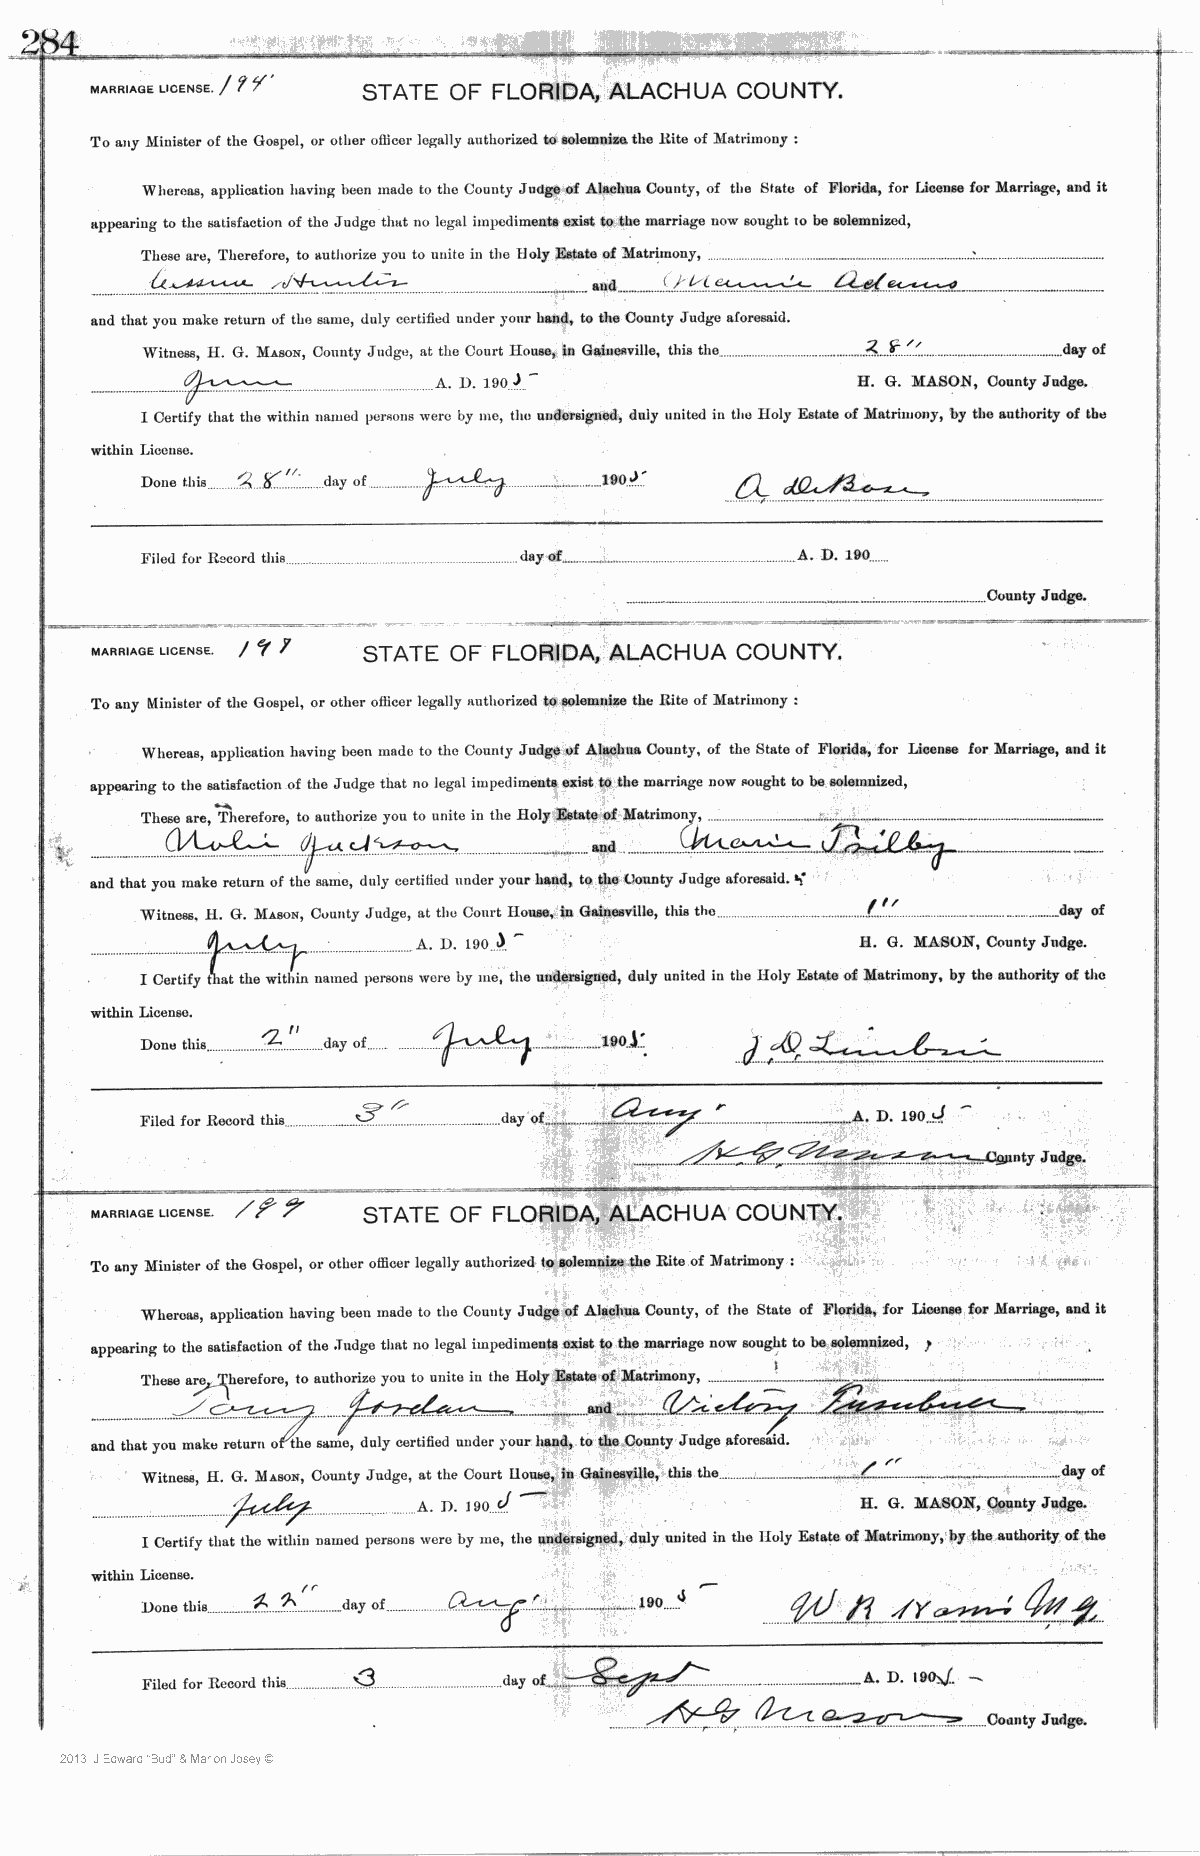 284
MARRIAGE LICENSE. 194 STATE OF FLORIDA, ALACHUA COUNTY.
To any Minister of the Gospel, or other officer legally authorized to solemnize the Rite of Matrimony :
Whereas, application having been made to the County Judge of Alachua County, of the State of Florida, for License for Marriage, and it
appearing to the satisfaction of the Judge that no legal impediments exist to the marriage now sought to be solemnized,
These are, Therefore, to authorize you to unite in the Holy Estate of Matrimony,
Hunter and Mamie Adams
and that you make return of the same, duly certified under your hand, to the County Judge aforesaid.
Witness, H. G. MASON, County Judge, at the Court House, in Gainesville, this the 28" day of
June A. D. 1905 H. G. MASON, County Judge.
I Certify that the within named persons were by me, the undersigned, duly united in the Holy Estate of Matrimony, by the authority of the
within License.
Done this 28" day of July 1905 A. DeBose
Filed for Record this day of A. D. 190
County Judge.
MARRIAGE LICENSE. 198 STATE OF FLORIDA, ALACHUA COUNTY.
To any Minister of the Gospel, or other officer legally authorized to solemnize the Rite of Matrimony :
Whereas, application having been made to the County Judge of Alachua County, of the State of Florida, for License for Marriage, and it
appearing to the satisfaction of the Judge that no legal impediments exist to the marriage now sought to be solemnized,
These are, Therefore, to authorize you to unite in the Holy Estate of Matrimony,
Nolie Jackson and Marie
and that you make return of the same, duly certified under your hand, to the County Judge aforesaid.
Witness, H. G. MASON, County Judge, at the Court House, in Gainesville, this the 1" day of
July A. D. 1905 H. G. MASON, County Judge.
I Certify that the within named persons were by me, the undersigned, duly united in the Holy Estate of Matrimony, by the authority of the
within License.
Done this 2" day of July 1905 J. D.
Filed for Record this 3" day of Aug. A. D. 1905
H. G. Mason County Judge.
MARRIAGE LICENSE. 199 STATE OF FLORIDA, ALACHUA COUNTY.
To any Minister of the Gospel, or other officer legally authorized to solemnize the Rite of Matrimony :
Whereas, application having been made to the County Judge of Alachua County, of the State of Florida, for License for Marriage, and it
appearing to the satisfaction of the Judge that no legal impediments exist to the marriage now sought to be solemnized,
These are, Therefore, to authorize you to unite in the Holy Estate of Matrimony,
Tony Jordan and Victory
and that you make return of the same, duly certified under your hand, to the County Judge aforesaid.
Witness, H. G. MASON, County Judge, at the Court House, in Gainesville, this the 1" day of
July A. D. 1905 H. G. MASON, County Judge.
I Certify that the within named persons were by me, the undersigned, duly united in the Holy Estate of Matrimony, by the authority of the
within License.
Done this 22" day of Aug. 1905 W R Harris M.G.
Filed for Record this 3 day of Sept A. D. 1905
H. G. Mason County Judge.
2013 J Edward "Bud" & Marion Josey ©